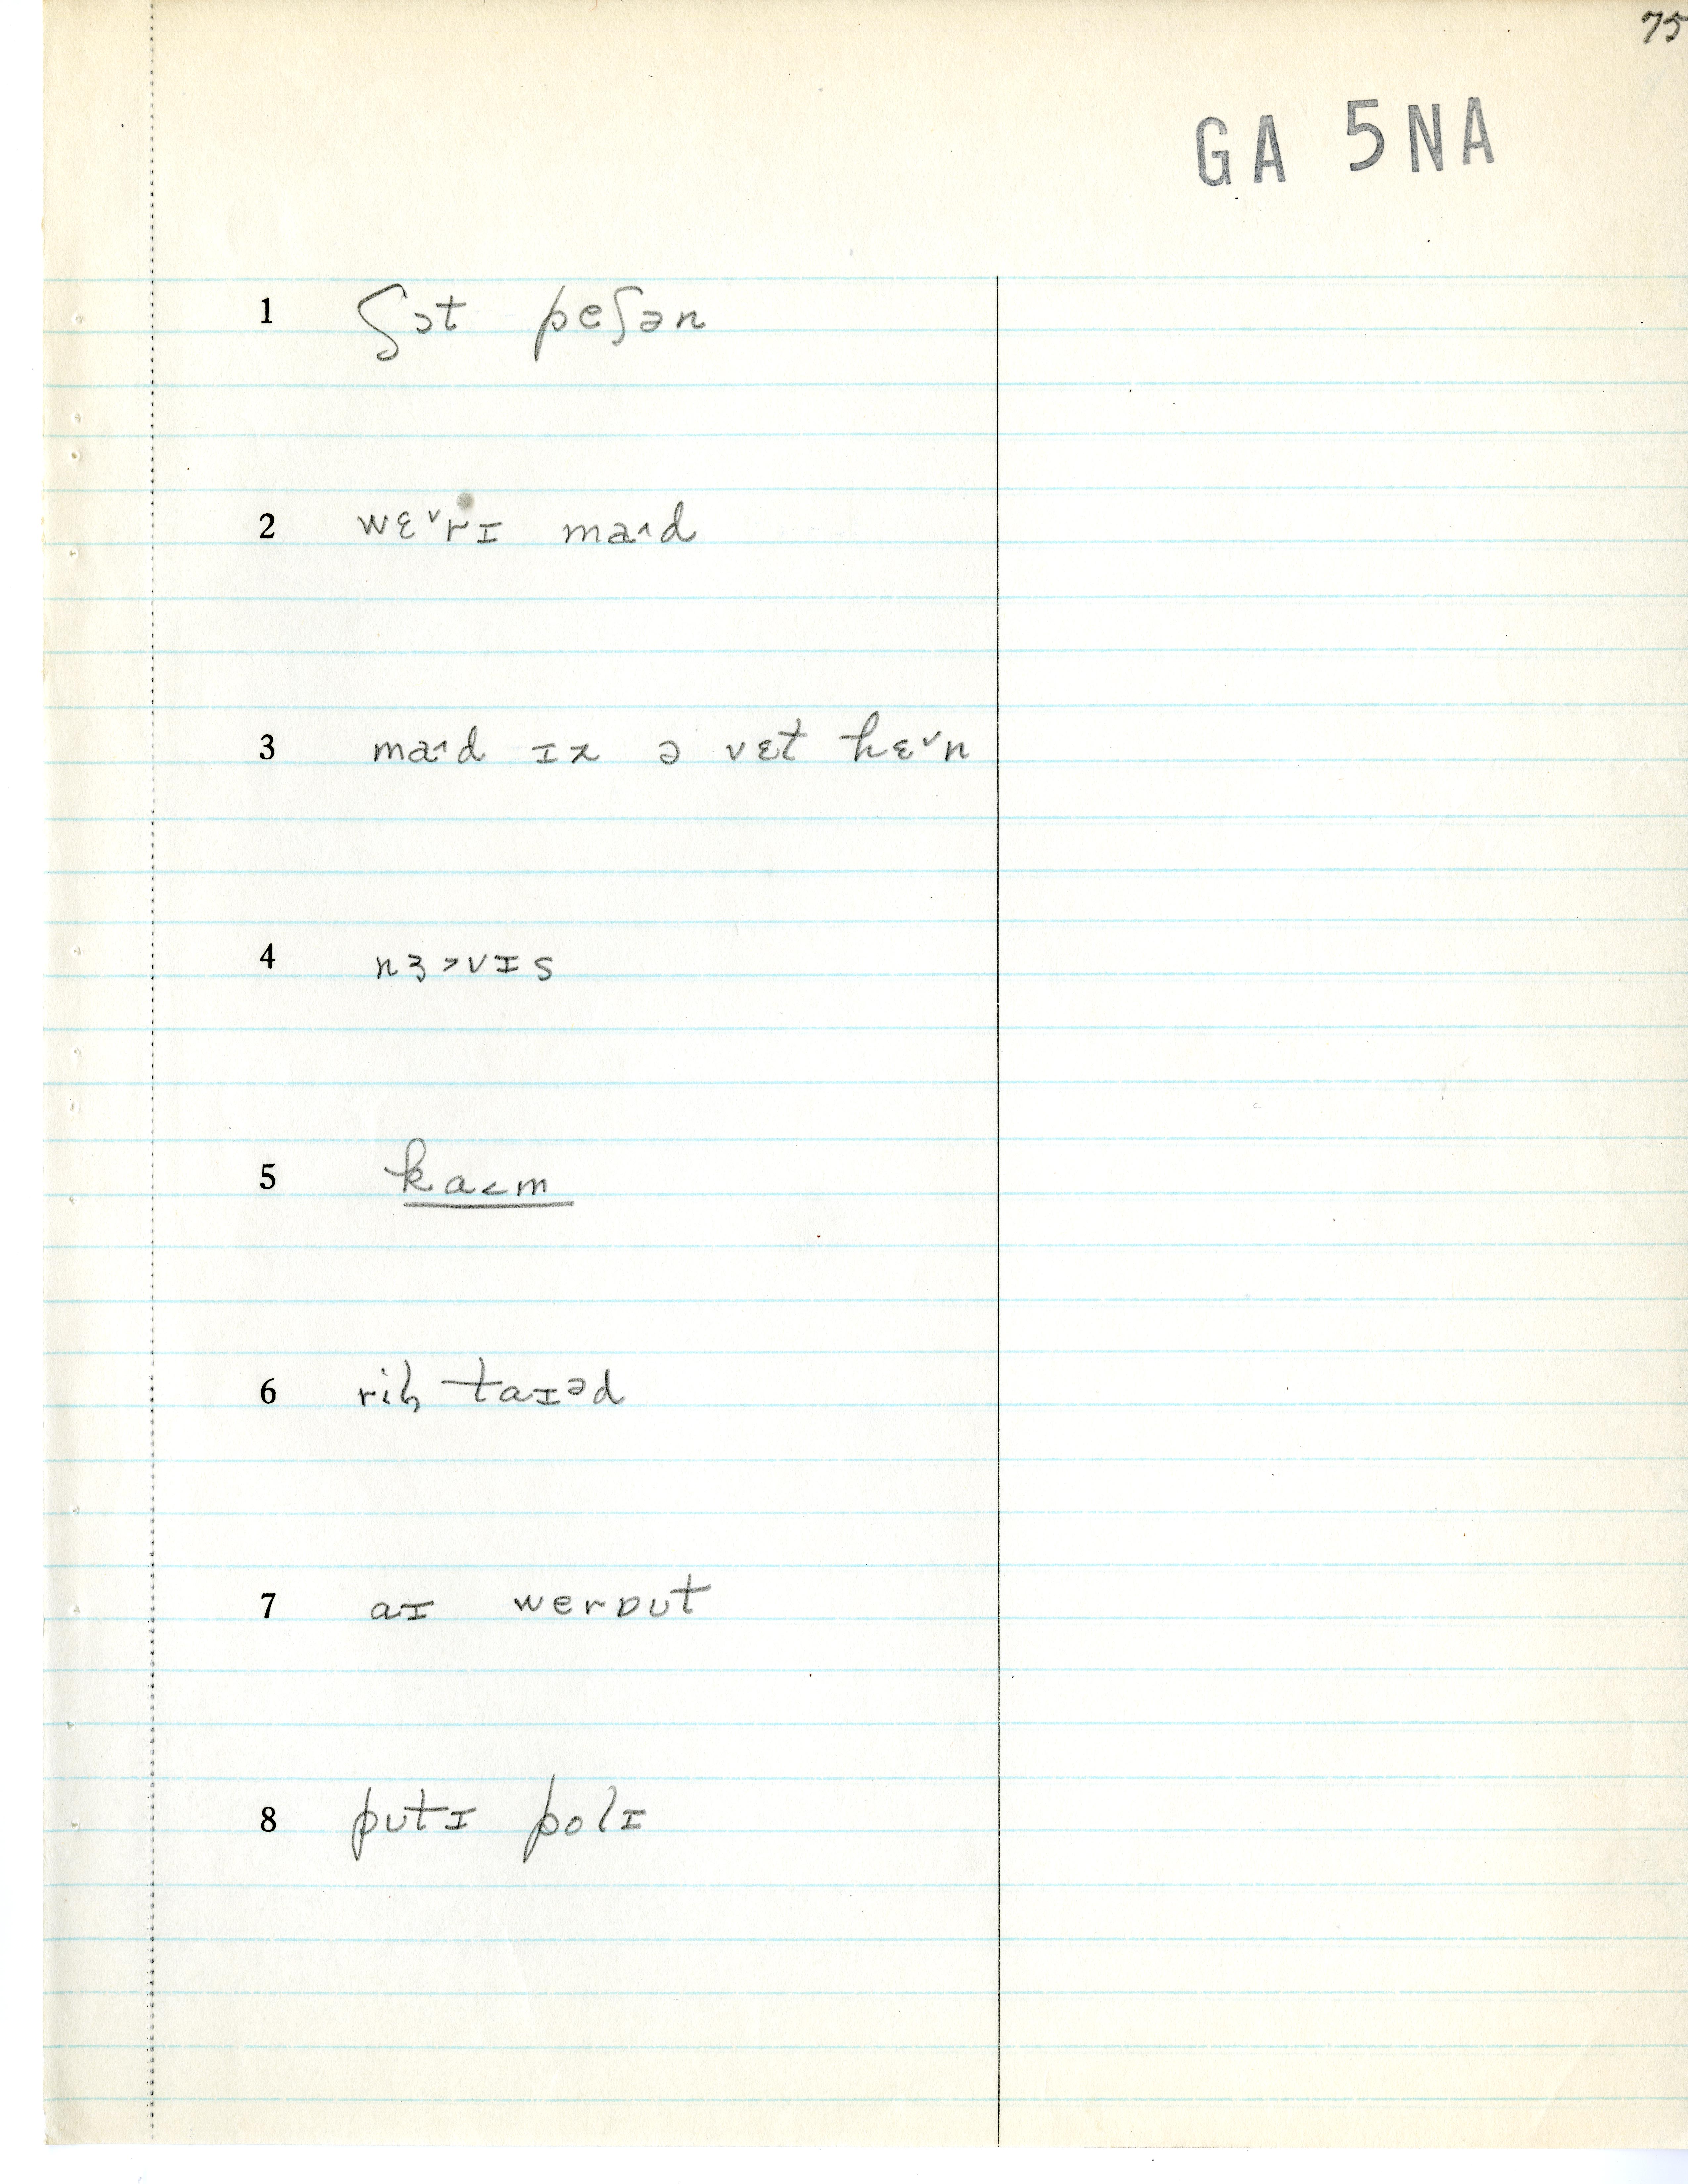 75
GA 5NA
1 ʃɔt peʃən
2 wɛ˅rɪ ma˄d
3 ma˄d ɪz ə vɛt hɛ˅n
4 nɜ˃vɪs
5 ka˂m
6 taɪəd
7 aɪ werɒut
8 putɪ polɪ